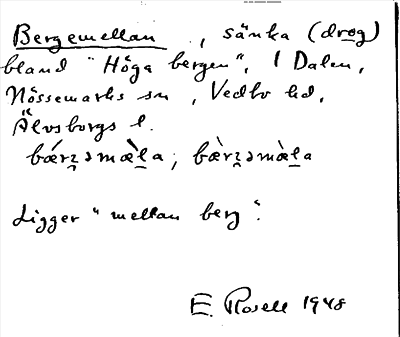 Bergemellan, sänka (drog)
bland "Höga bergen", I Dalen,
Nössemarks sn, Vedbo hd,
Älvsborgs l.
bǽrʒəmæ̀la; bæ̀rʒəmàla
Ligger "mellan berg".
E. Rosell 1948